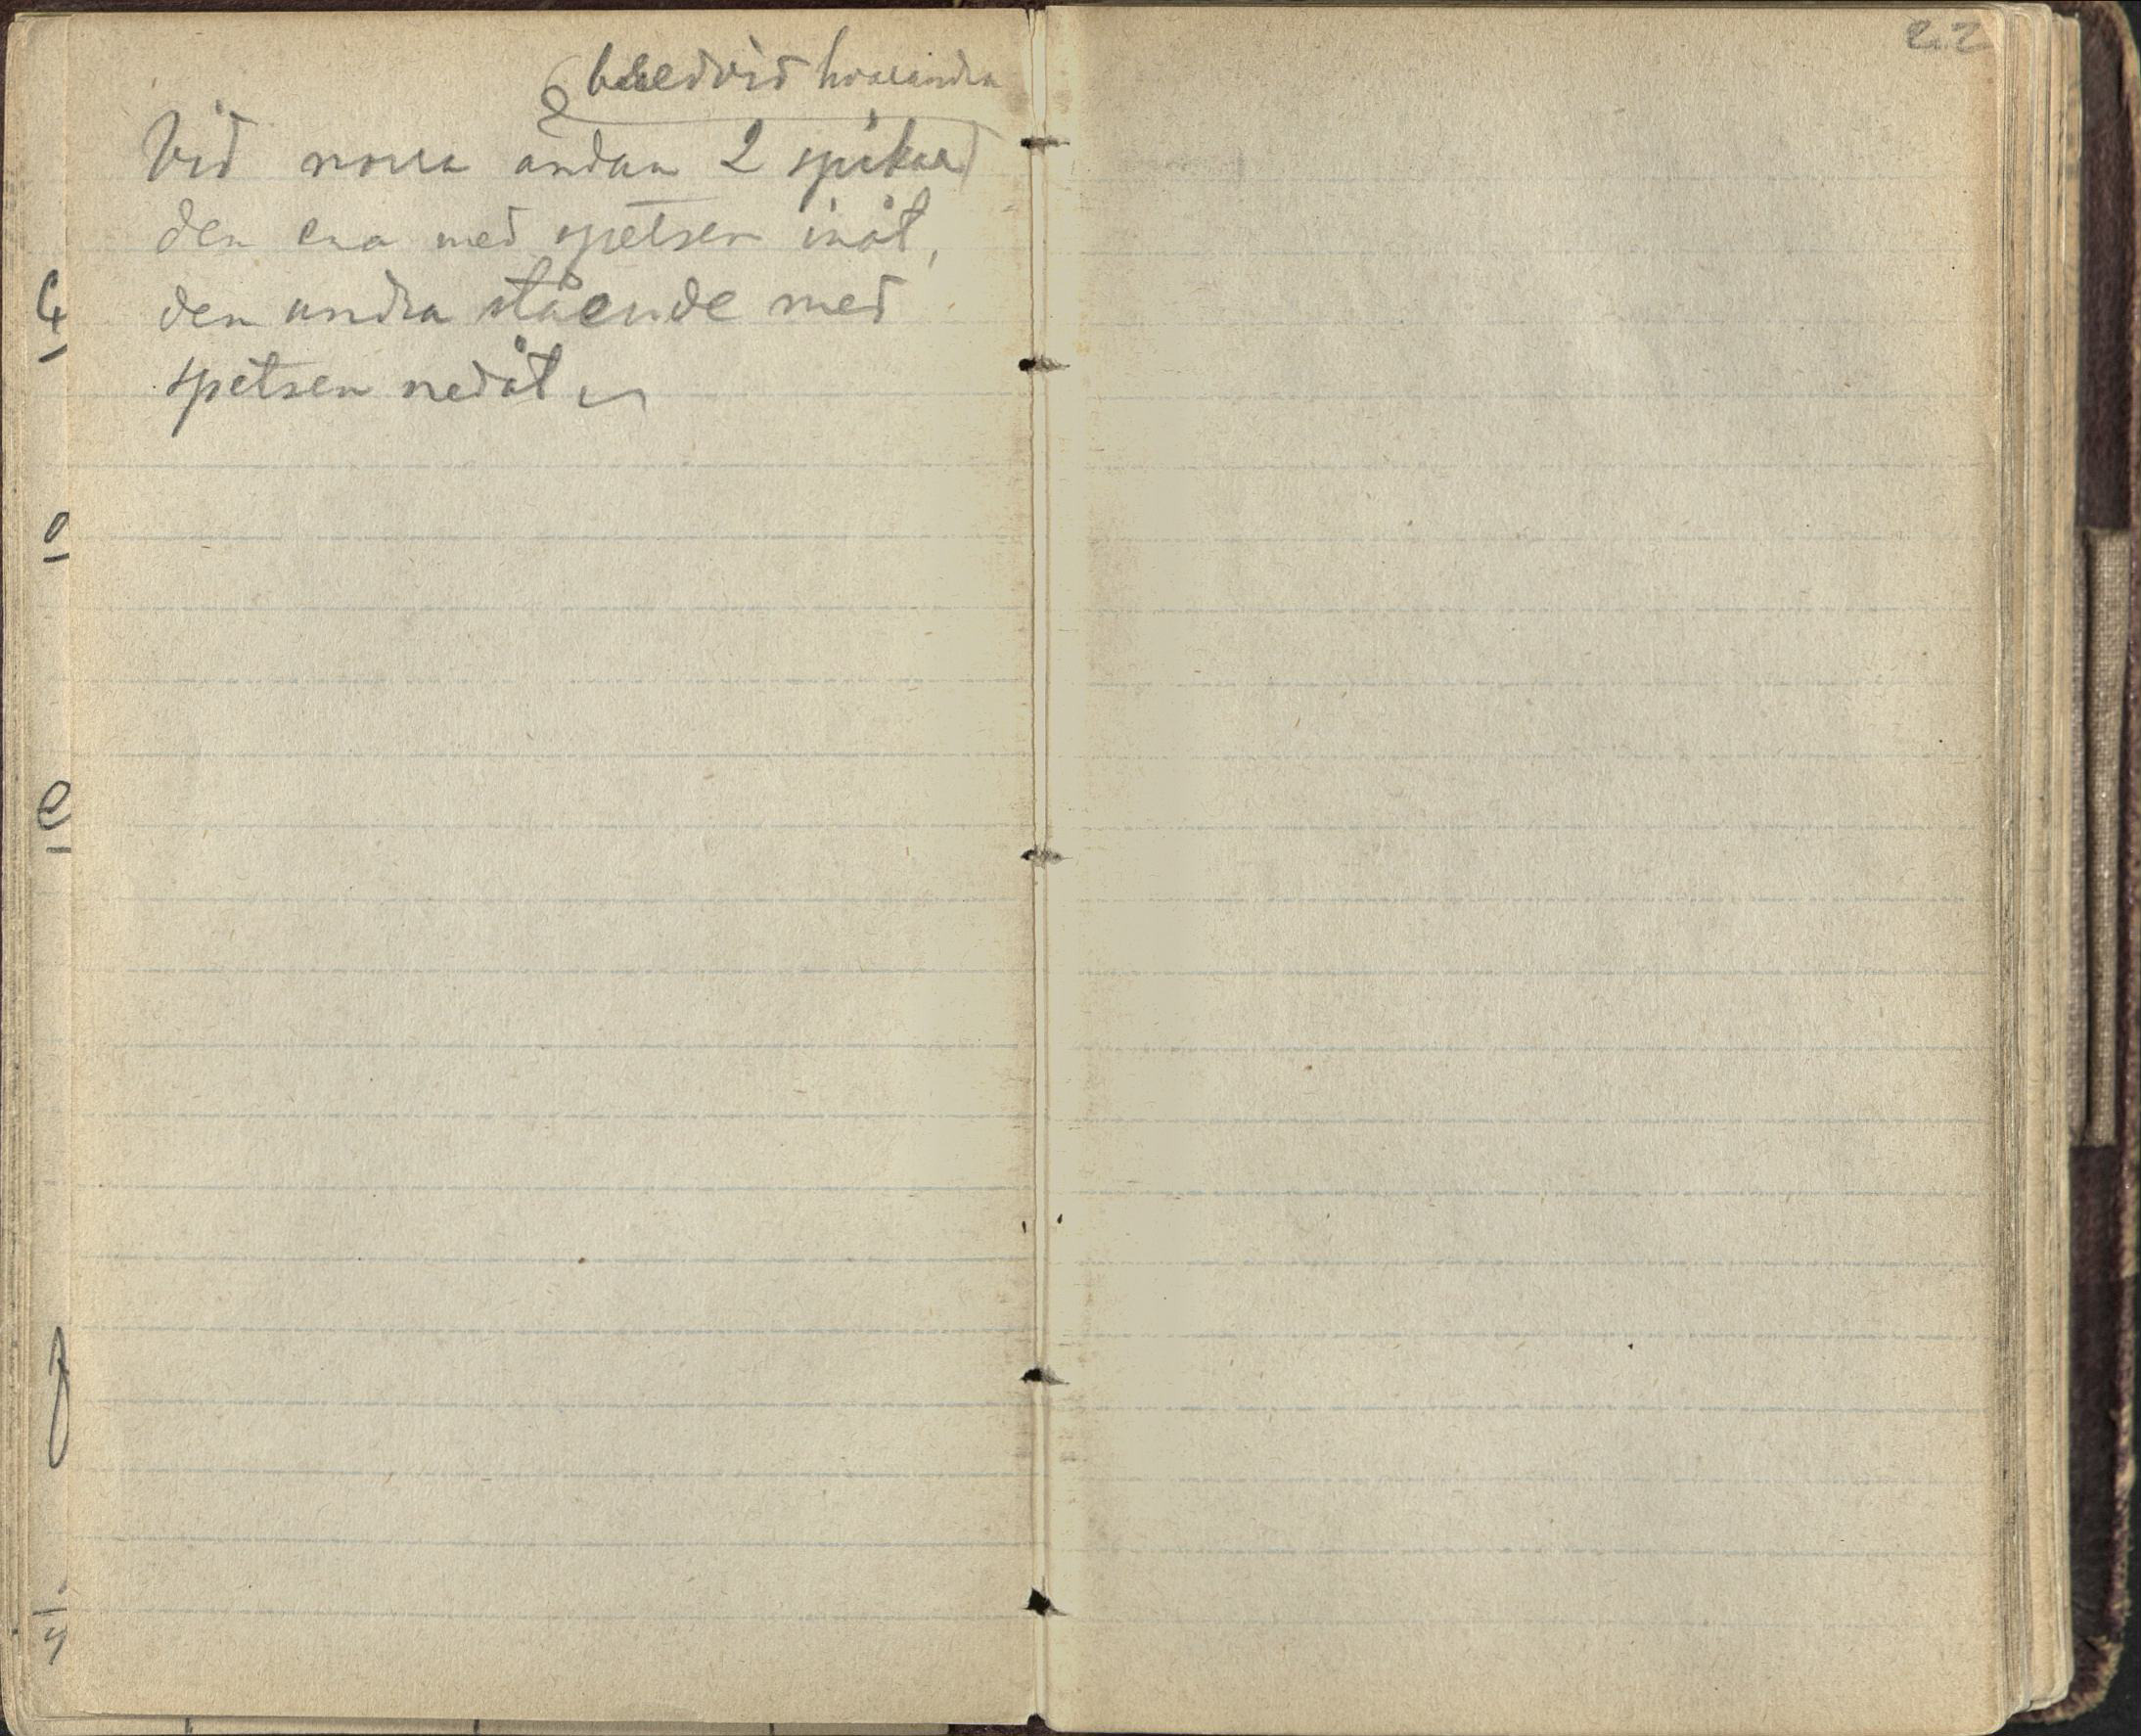 bredvid hvarandra
Vid norra ändan 2 spikar
den ena med spetsen inåt,
den andra stående med
spetsen nedåt
22